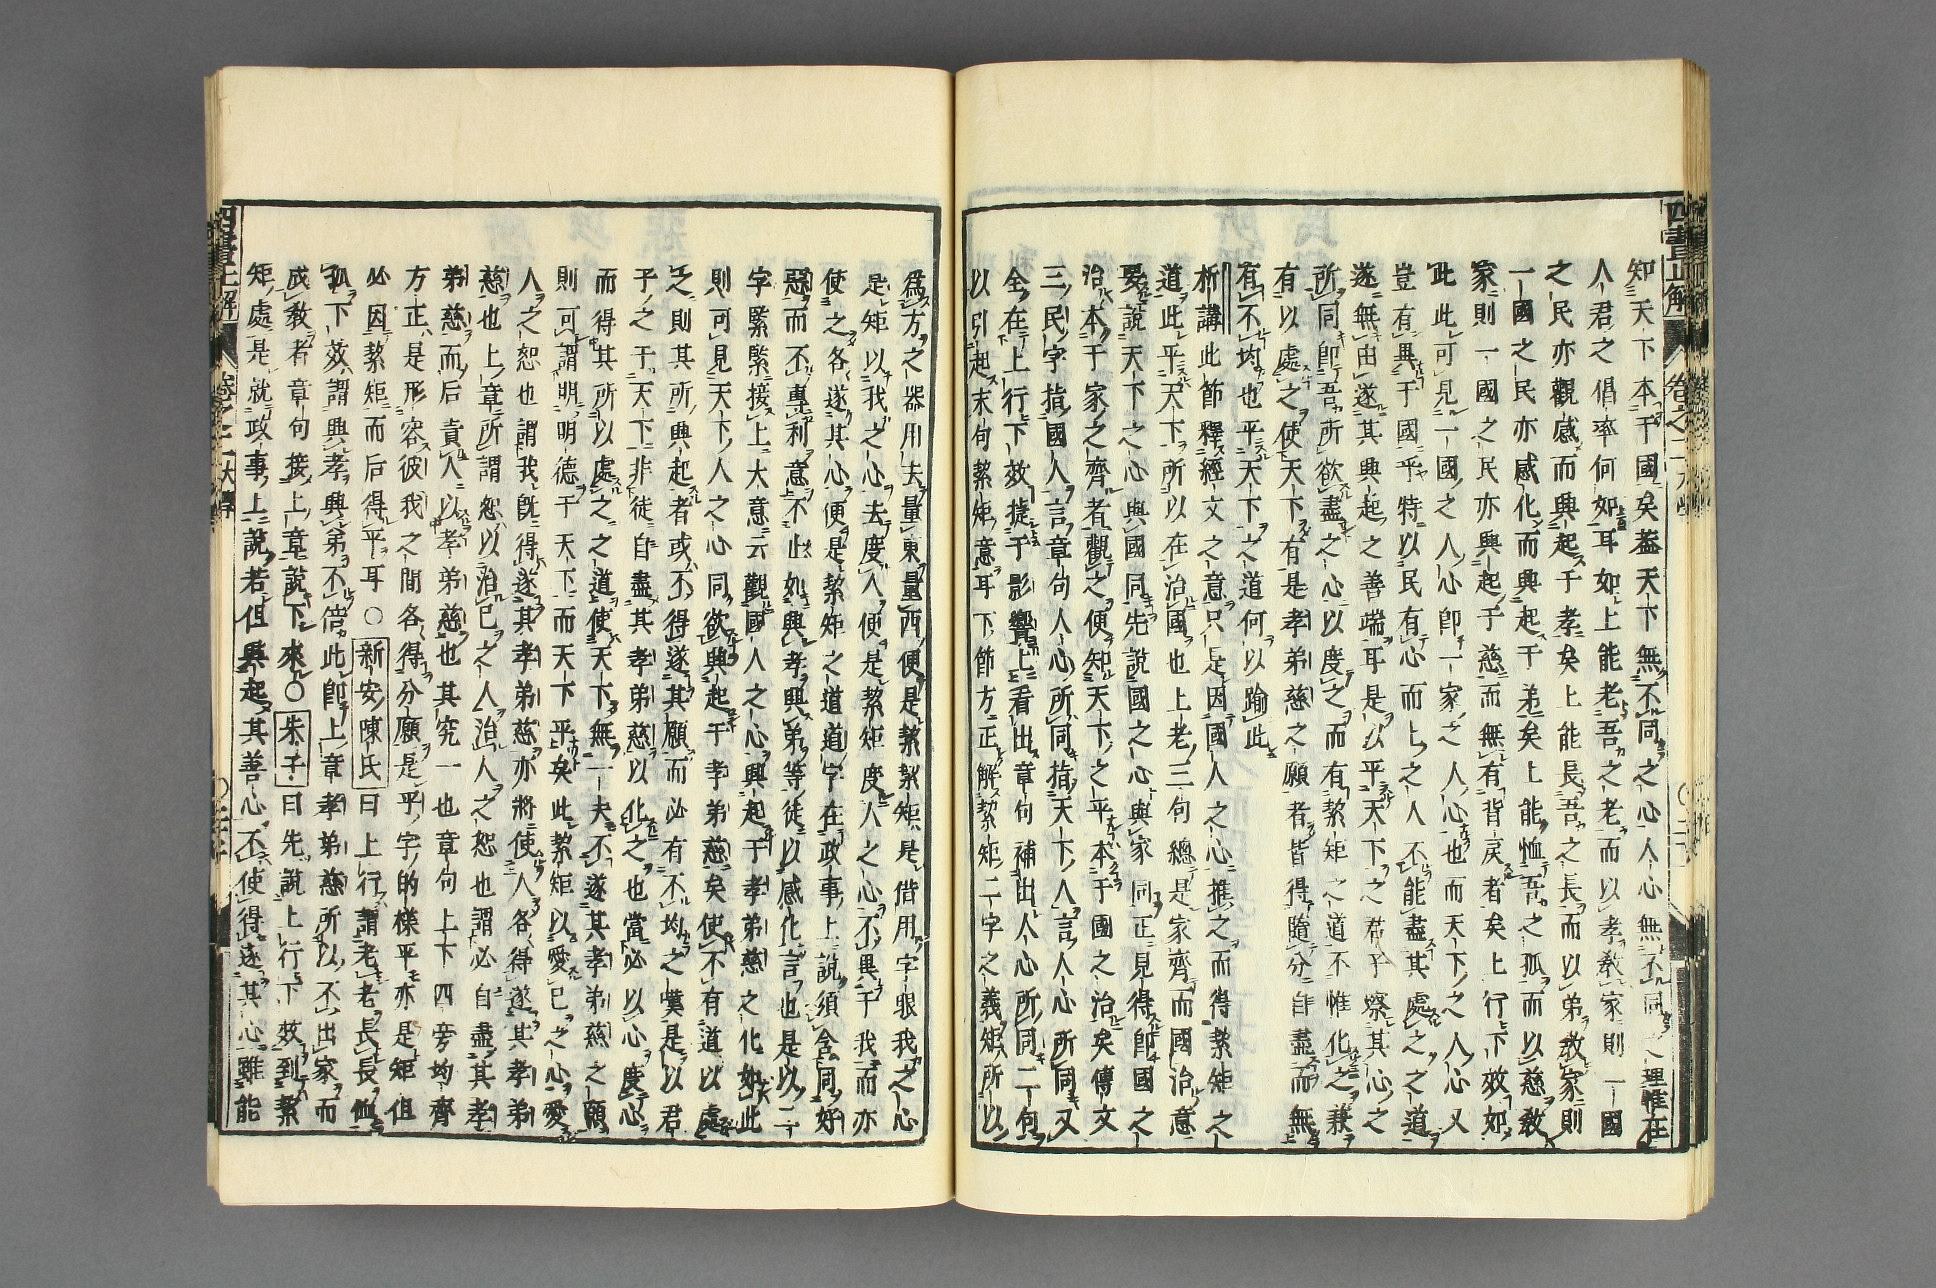 知天下本于國矣蓋天下無不同之心人心無不同之理惟在
人君之倡率何如耳如上能老吾之老而以孝教家則一國
之民亦觀感而興起于孝矣上能長吾之長而以弟教家則
一國之民亦感化而興起于弟矣上能恤吾之孤而以慈教
家則一國之民亦興起于慈而無有背戾者矣上行下效如
此此可見一國之人心卽一家之人心也而天下之人心又
豈有異于國乎特以民有心而上之人不能盡其處之之道
遂無由遂其興起之善端耳是以平天下之君子察其心之
所同卽吾所欲盡之心以度之而有絜矩之道不惟化之兼
有以處之使天下有是孝弟慈之願者皆得隨分自盡而無
有不均也平天下之道何以踰此
析講此節釋經文之意只是因國人之心推之而得絜矩之
道此平天下所以在治國也上老三句總是家齊而國治意
要說天下之心與國同先說國之心與家同正見得卽國之
治本于家之齊者觀之便知天下之平本于國之治矣傳文
三民字指國人言章句人心所同指天下人言人心所同又
全在上行下效捷于影響上看出章句補出人心所同二句
以引起末句絜矩意耳下節方正解絜矩二字之義矩所以
爲方之器用去量東量西便是絜絜矩是借用字眼我之心
是矩以我之心去度人便是絜矩度人之心不異于我而亦
使之各遂其心便是絜矩之道道字在政事上說須含同好
惡而不專利意不止如興孝興弟等徒以感化言也是以二
字緊緊接上大意云觀國人之心興起于孝弟慈之化如此
則可見天下人之心同欲興起于孝弟慈矣使不有道以處
之則其所興起者或不得遂其願而必有不均之嘆是以君
子之于天下非徒自盡其孝弟慈以化之也當必以心度心
而得其所以處之之道使天下無一夫不遂其孝弟慈之願
則可謂明明德于天下而天下平矣此絜矩以愛己之心愛
人之恕也謂我旣得遂其孝弟慈亦將使人各得遂其孝弟
慈也上章所謂恕以治己之人治人之恕也謂必自盡其孝
弟慈而后責人以孝弟慈也其究一也章句上下四旁均齊
方正是形容彼我之間各得分願是乎字的樣平亦是矩但
必因絜矩而后得平耳○新安陳氏曰上行謂老老長長恤
孤下效謂興孝興弟不倍此卽上章孝弟慈所以不出家而
成教者章句接上章說下來○朱子曰先說上行下效到絜
矩處是就政事上說若但興起其善心不使得遂其心雖能
四書正解 卷之二大學
四書正解 卷之二大學